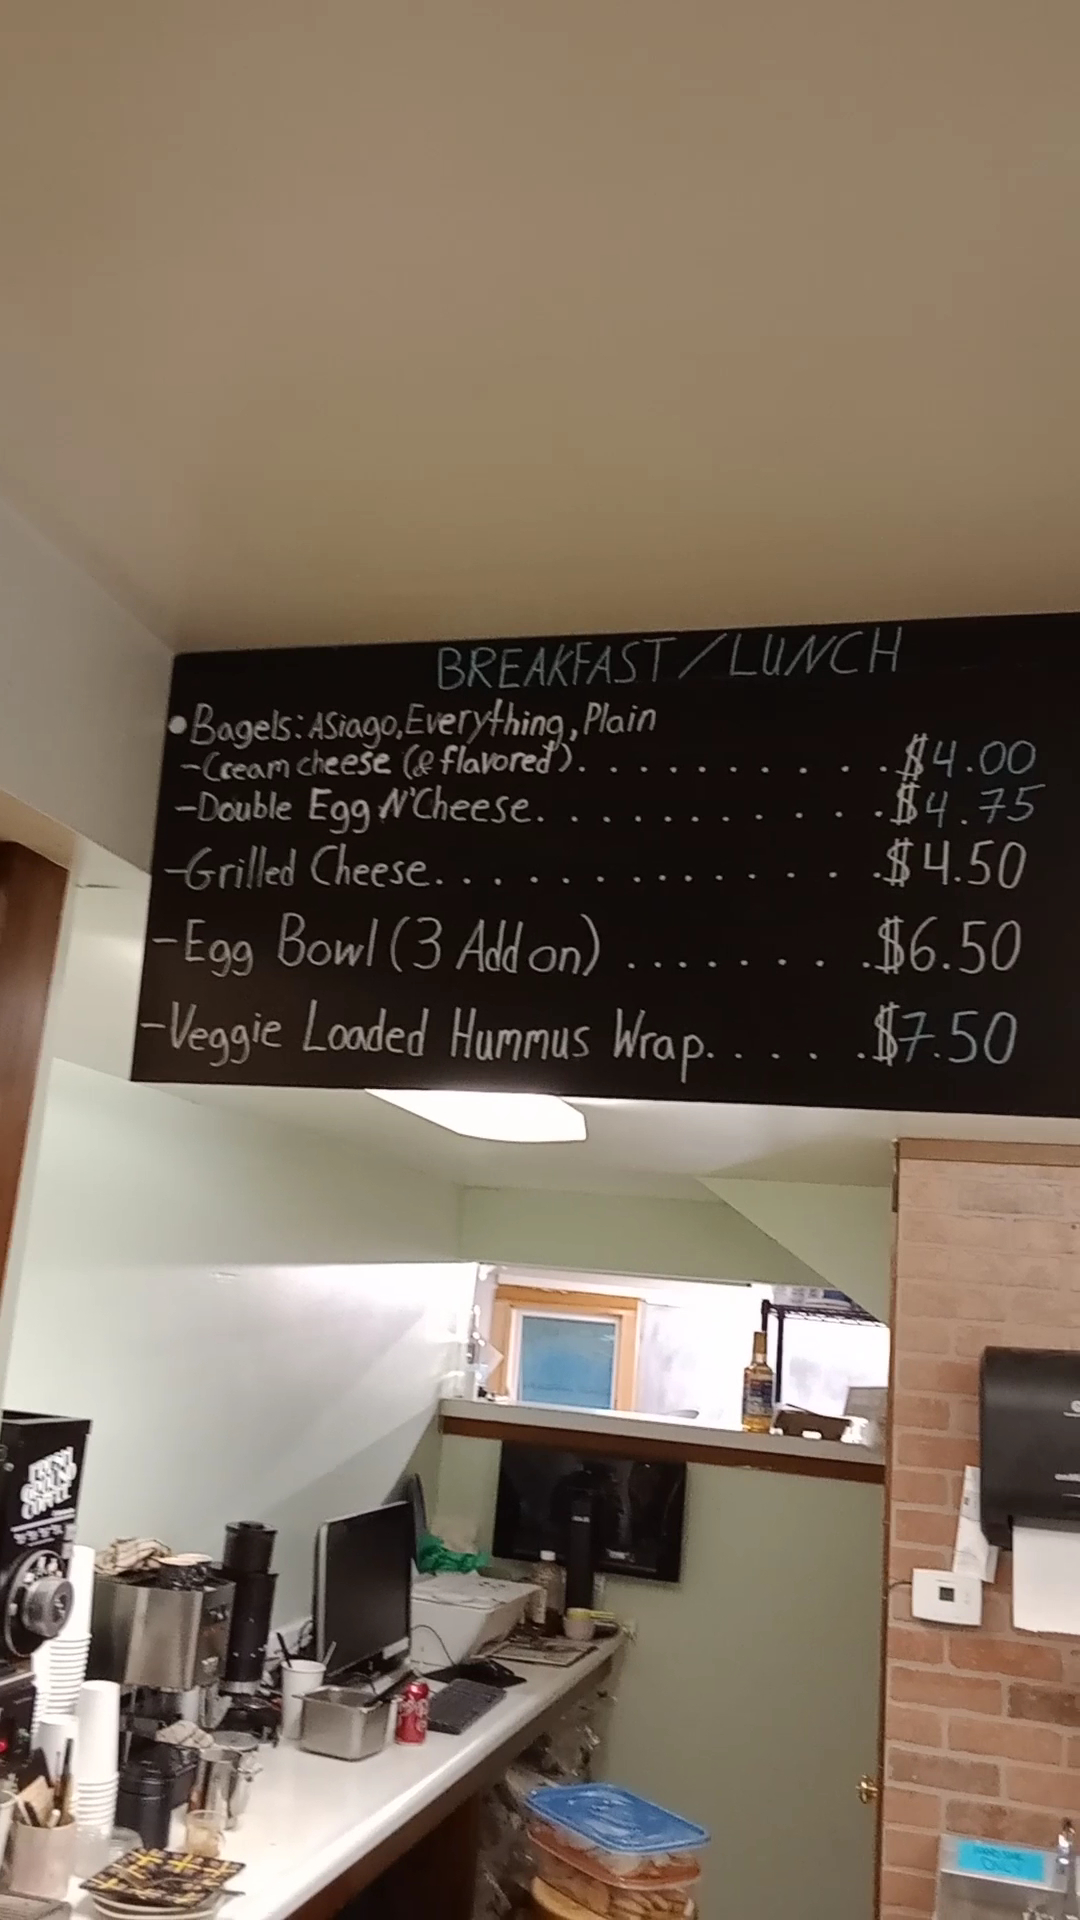 BREAKFAST/LUNCH
•Bagels: Asiago, Everything, Plain
-Cream cheese (& flavored). . . . . . . . . . . .$4.00
-Double Egg N'Cheese. . . . . . . . . . . . .$4.75
-Grilled Cheese. . . . . . . . . . . . . . .$4.50
-Egg Bowl (3 Add on) . . . . . . . .$6.50
-Veggie Loaded Hummus Wrap. . . . . .$7.50
FRESH
GROUND
COFFEE
ONLY